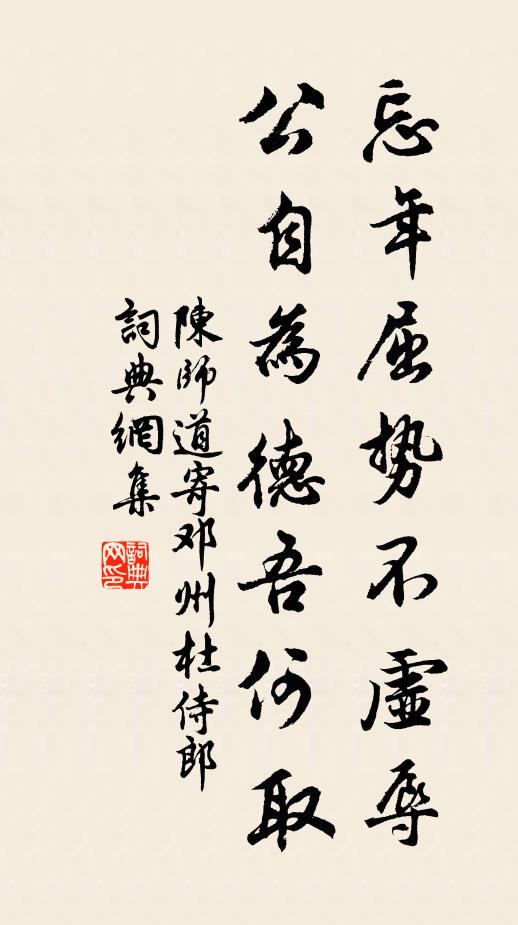 忘年屈势不虚辱
公自為德吾何取
陳師道寄邓州杜侍郎
詞典網集
詞典网印